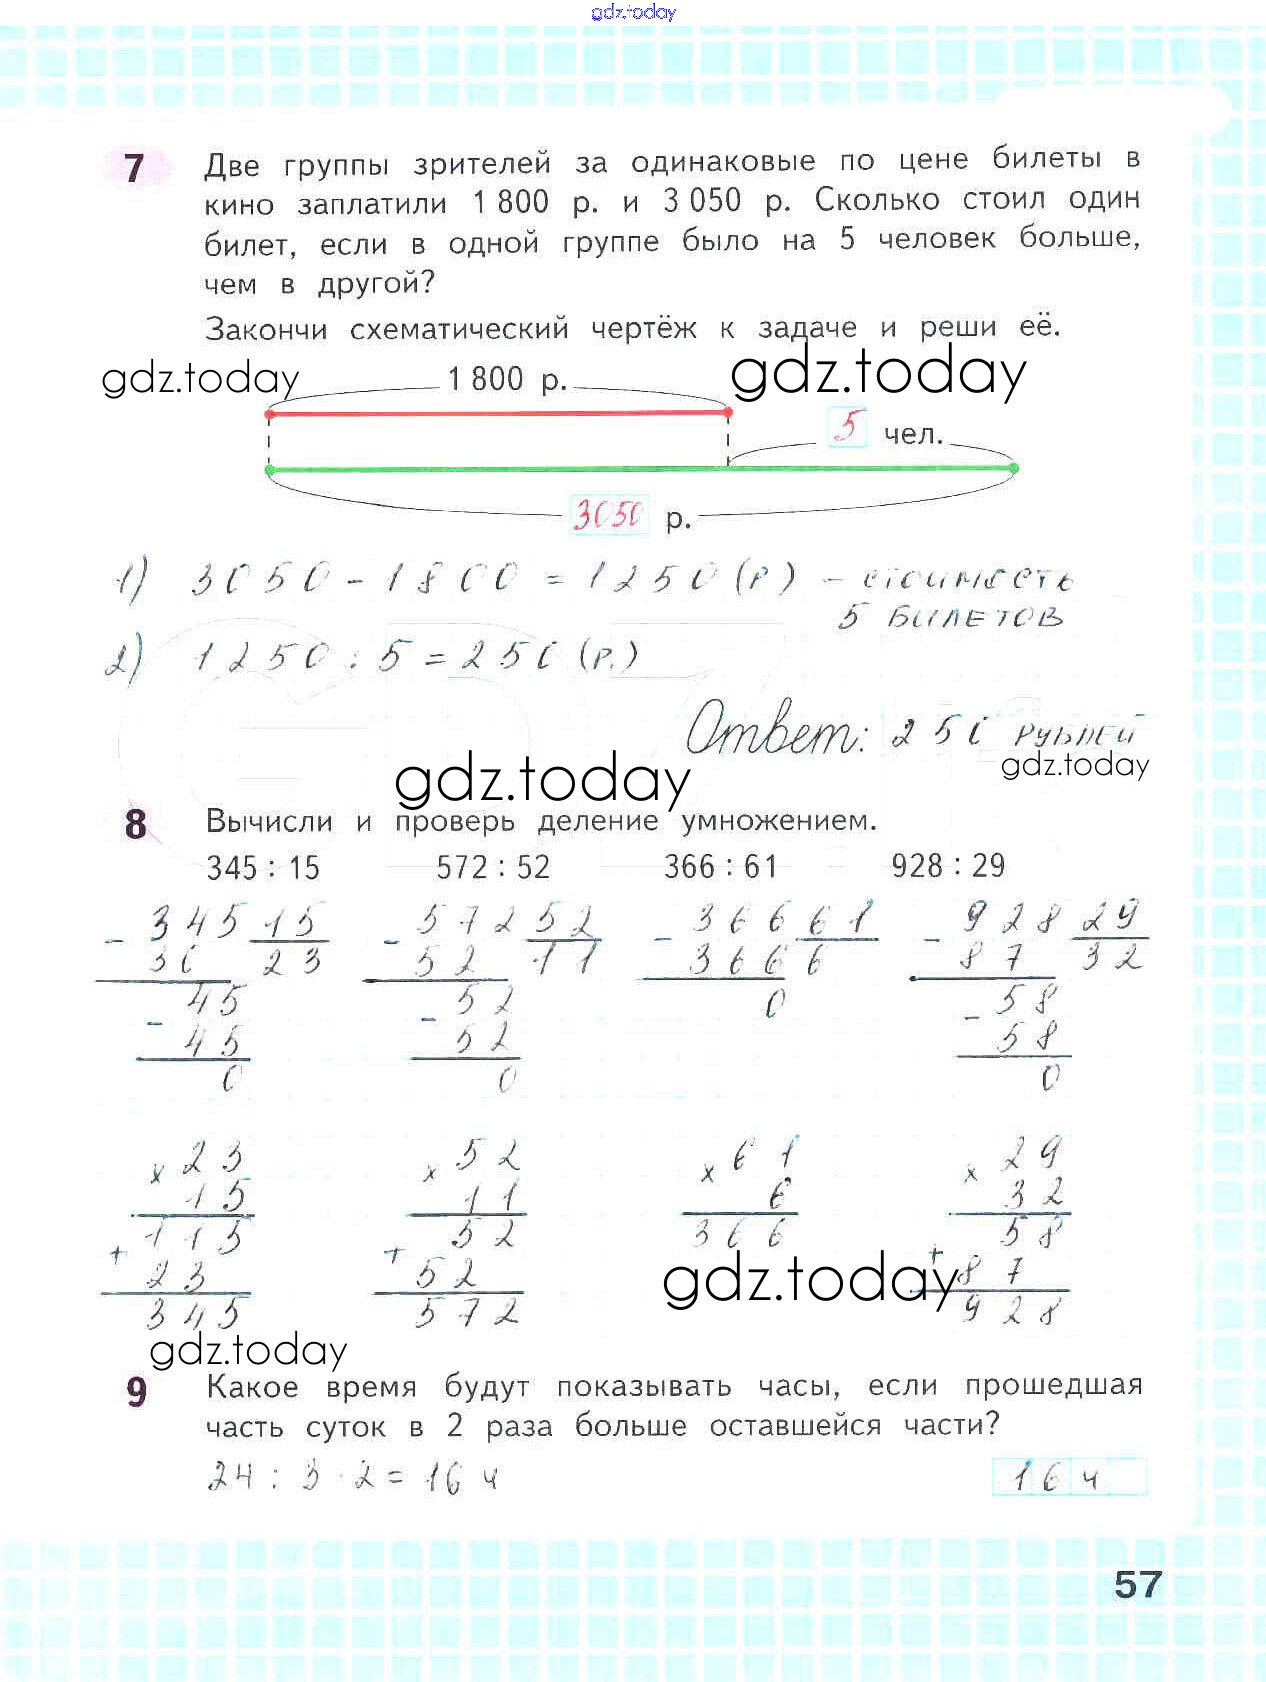 gdz.today
7 Две группы зрителей за одинаковые по цене билеты в
кино заплатили 1 800 р. и 3 050 р. Сколько стоил один
билет, если в одной группе было на 5 человек больше,
чем в другой?
Закончи схематический чертёж к задаче и реши её.
gdz.today 1 800 р. gdz.today
5 чел.
3050 р.
1) 3050 - 1800 = 1250 (р) - стоимость
5 билетов
2) 1250 : 5 = 250 (р.)
Ответ: 250 рублей
gdz.today gdz.today
8 Вычисли и проверь деление умножением.
345 : 15 572 : 52 366 : 61 928 : 29
- 345 15 - 572 52 - 366 61 - 928 29
30 23 52 11 366 6 87 32
- 45 - 52 0 - 58
45 52 58
0 0 0
× 23 × 52 × 61 × 29
15 11 6 32
115 52 366 58
+ 23 + 52 gdz.today + 87
345 572 928
gdz.today
9 Какое время будут показывать часы, если прошедшая
часть суток в 2 раза больше оставшейся части?
24 : 3 · 2 = 16 ч 16 ч
57